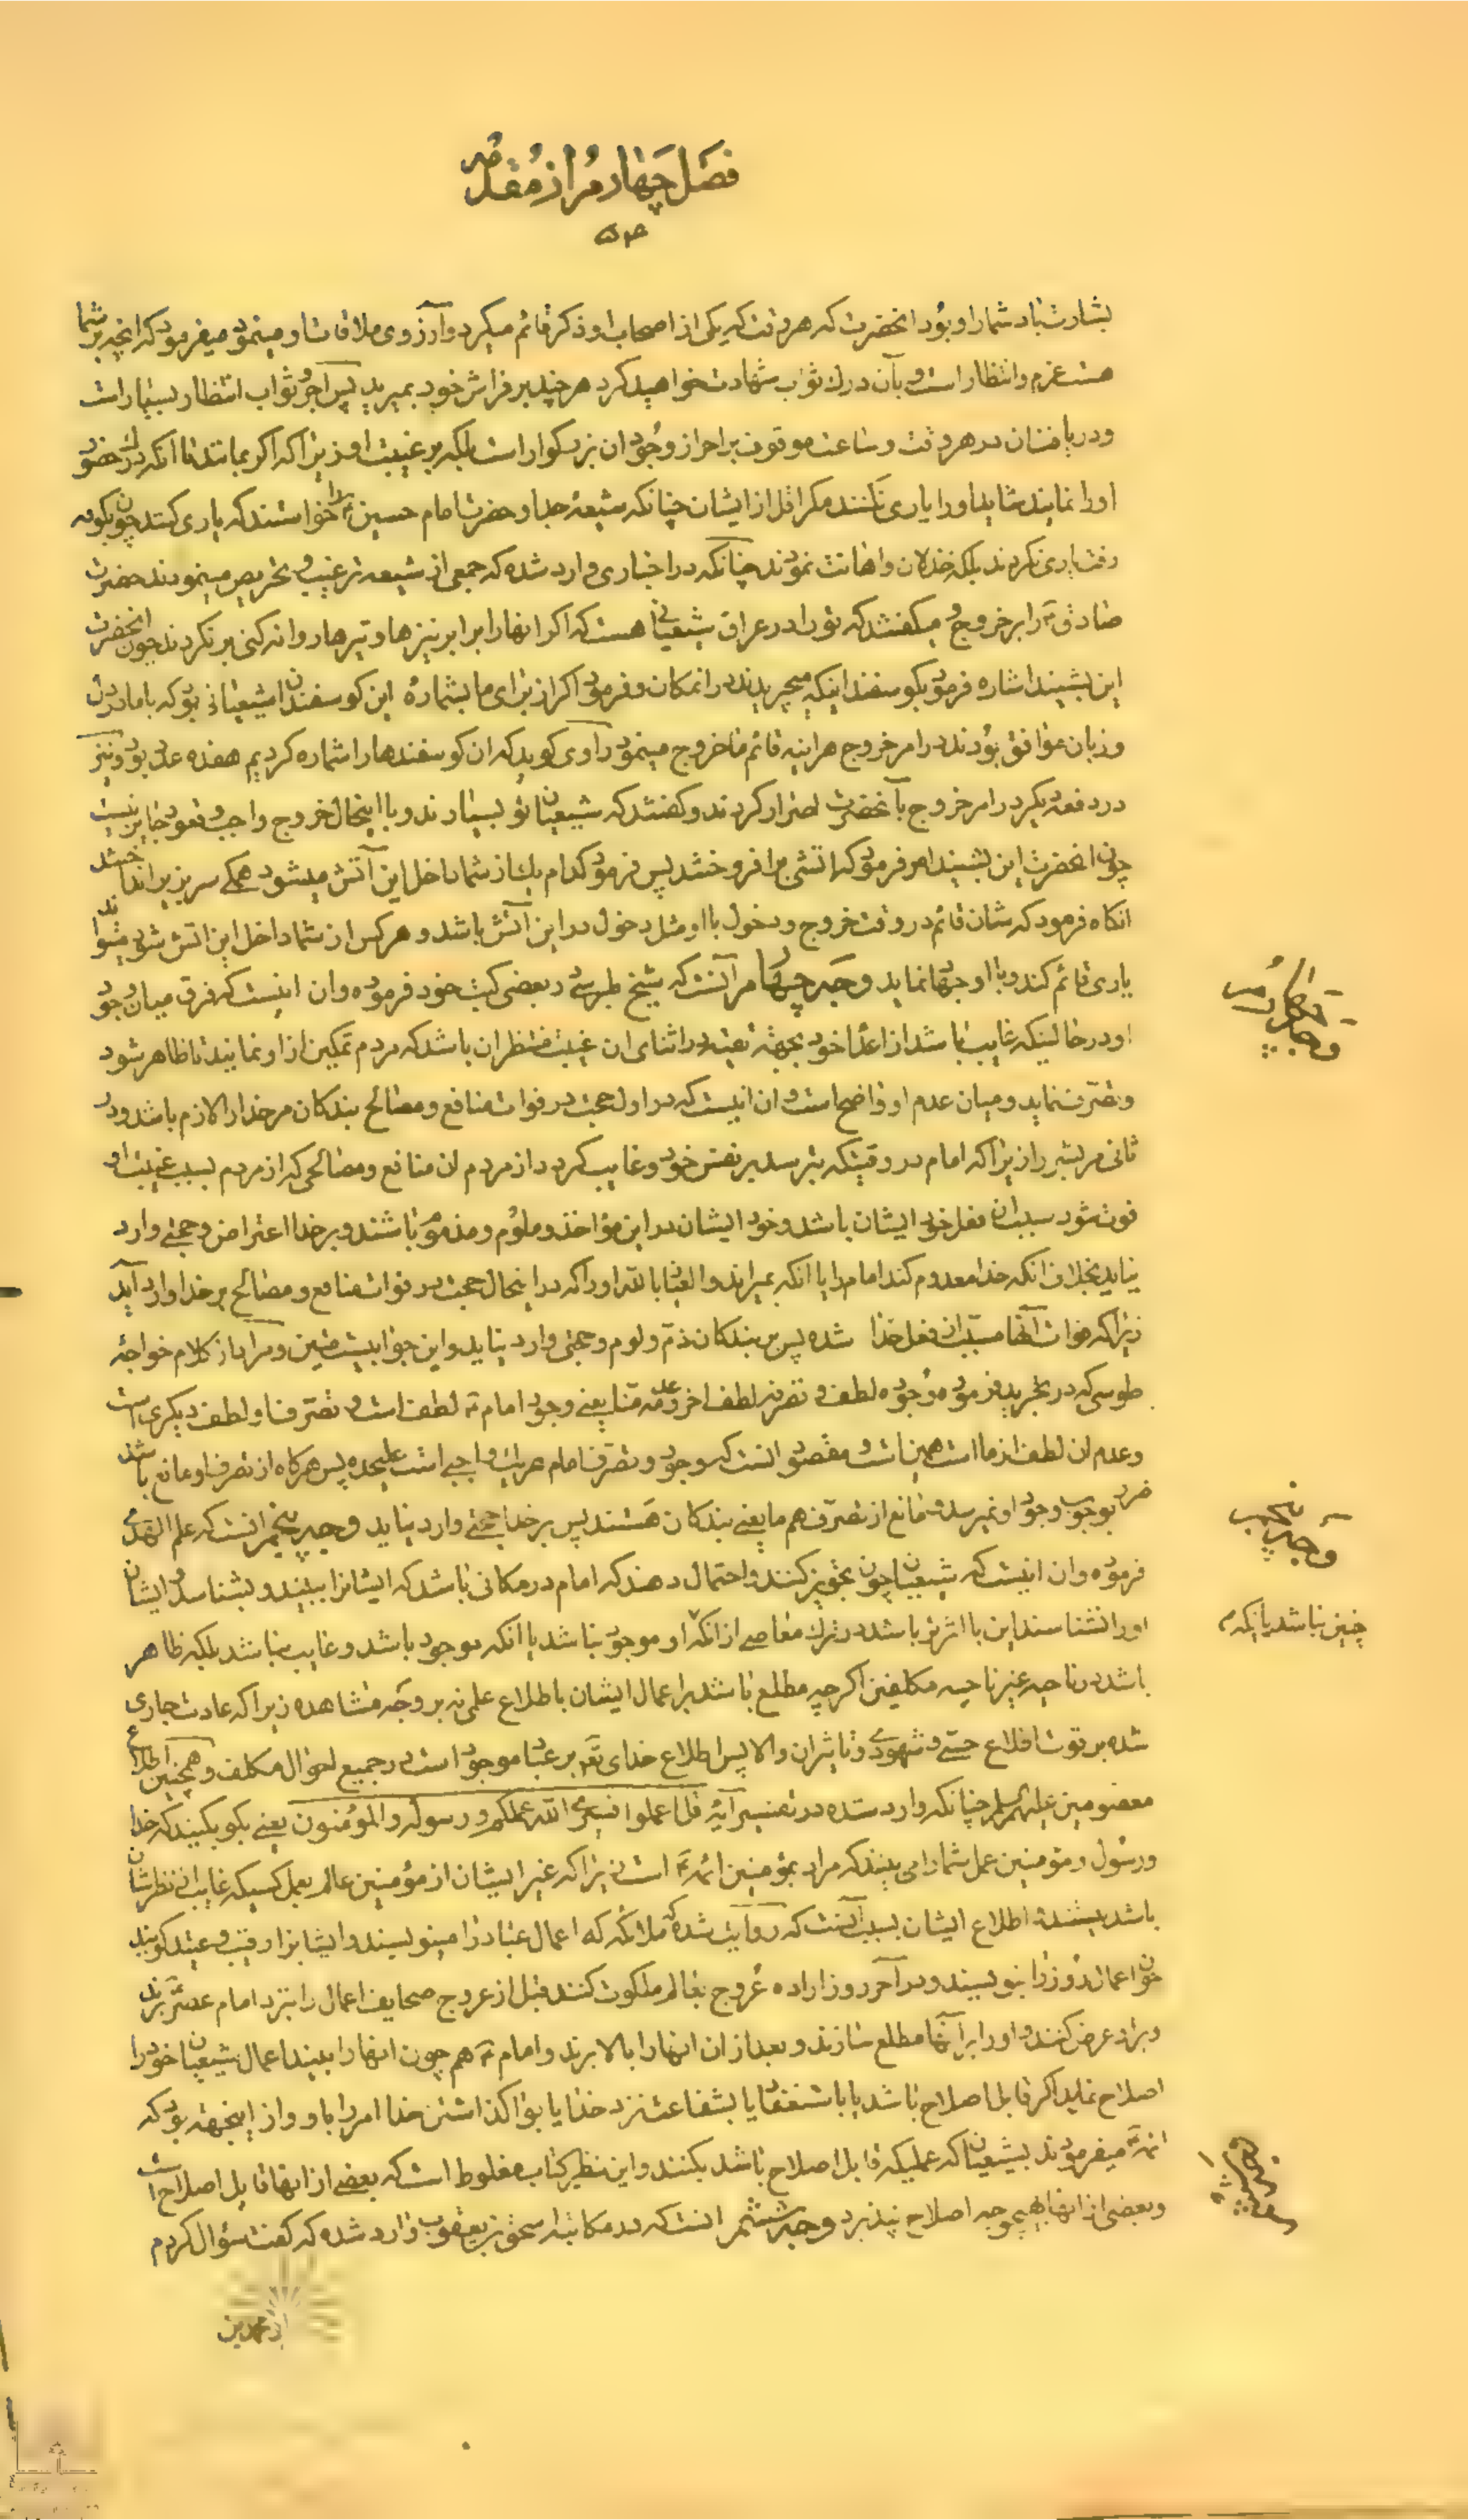 فصل چهارم از مقدمه
بشارت باد شما را و بود انحضرت که هر وقت که یکی از اصحاب او ذکر قائم میکرد و آرزوی ملاقات او مینمود میفرمود که انچه بر شما
هست عزم و انتظار است و بآن درک ثواب شهادت خواهید کرد هر چند بر فراش خود بمیرید پس اجر و ثواب انتظار بسیار است
و در هر وقت و ساعت موقوف بر احراز وجود ان بزرکوار است بلکه بر غیبت او زیرا که اکر بمانند تا انکه درک حضور
او را نمایند شاید او را یاری نکنند مکر اقل از ایشان چنانکه شیعهٔ جد او حضرت امام حسین ع را خواستند که یاری کنند چون بکوفه
رفت یاری نکردند بلکه خذلان و اهانت نمودند چنانکه در اخباری وارد شده که جمعی از شیعه ترغیب و تحریص مینمودند حضرت
صادق ع را بر خروج و میکفتند که تو را در عراق شیعیانی هست که اکر انها را برابر نیزها و تیرها روانه کنی بر نکردند چون انحضرت
این بشنید اشاره فرمود بکوسفندانیکه میچریدند در انمکان و فرمود اکر از برای ما بشمارهٔ این کوسفندان شیعیانی بود که با ما در دل
و زبان موافق بودند در امر خروج هراینه قائم ما خروج مینمود راوی کوید که ان کوسفندها را شماره کردیم هفده عدد بود و نیز
در دفعه دیکر در امر خروج بآنحضرت اصرار کردند و کفتند که شیعیان تو بسیارند و با اینحال خروج واجب و قعود جایز نیست
چون انحضرت این بشنید امر فرمود که اتشی برافروختند پس فرمود کدام یک از شما داخل این آتش میشود همکی سر بزیر انداختند
انکاه فرمود که شان قائم در وقت خروج و دخول با او مثل دخول در این آتش باشد و هر کس از شما داخل این اتش شود میتواند
یاری قائم کند و با او جهاد نماید وجه چهارم آنست که شیخ طبرسی در بعضی کتب خود فرموده و ان اینست که فرق میان وجود
او در حالتیکه غایب باشد از اعداء خود بجهة تقیه و در اثنای ان غیبت منتظر ان باشد که مردم تمکین از او نمایند تا ظاهر شود
و تصرف نماید و میان عدم او واضح است و ان اینست که در اول حجت در فوات منافع و مصالح بندکان مر خدا را لازم باشد و در
ثانی مر بشر را زیرا که امام در وقتیکه بترسد بر نفس خود و غایب کردد از مردم ان منافع و مصالحی که از مردم بسبب غیبت او
فوت شود سبب ان فعل خود ایشان باشد و خود ایشان در این مؤاخذ و ملوم و مذموم باشند و بر خدا اعتراض و حجتی وارد
نیاید بخلاف انکه خدا معدوم کند امام را یا انکه بمیراند والعیاذ بالله او را که در اینحال حجت در فوات منافع و مصالح بر خدا وارد آید
زیرا که فوات آنها مسبب از فعل خدا شده پس بر بندکان ذم و لوم و حجتی وارد نیاید و این جوابیست متین و مراد از کلام خواجه
طوسی که در تجرید فرموده وجوده لطف و تصرفه لطف اخر و عدمه منا یعنی وجود امام ع لطف است و تصرف او لطف دیکری است
و عدم ان لطف از ما است همین است و مقصود انست که وجود و تصرف امام هر یک واجبی است علیحده پس هر کاه از تصرف او مانع باشد
ضرر بوجوب وجود او نمیرسد و مانع از تصرف هم ما یعنی بندکان هستند پس بر خدا حجتی وارد نیاید وجه پنجم انست که علم الهدی
فرموده و ان اینست که شیعیان چون تجویز کنند و احتمال دهند که امام در مکانی باشد که ایشانرا ببیند و بشناسد و ایشان
او را نشناسند این با اثرتر باشد در ترک معاصی از انکه او موجود نباشد یا انکه موجود باشد و غایب نباشد بلکه ظاهر
باشد در ناحیه غیر ناحیه مکلفین اکر چه مطلع باشد بر اعمال ایشان باطلاع علمی نه بر وجه مشاهده زیرا که عادت جاری
شده بر قوت اطلاع حسی و شهودی و تاثیر ان والا پس اطلاع خدای تعالی بر عباد موجود است در جمیع احوال مکلف و همچنین اطلاع
معصومین علیهم السلم چنانکه وارد شده در تفسیر آیهٔ قل اعملوا فسیری الله عملکم و رسوله والمؤمنون یعنی بکو بکنید که خدا
و رسول و مؤمنین عمل شما را می بینند که مراد بمؤمنین ائمه ع است زیرا که غیر ایشان از مؤمنین عالم بعمل کسیکه غایب از نظر شان
باشد نیستند و اطلاع ایشان بسبب آنست که روایت شده که ملائکه که اعمال عباد را مینویسند و ایشانرا رقیب و عتید کویند
چون اعمال روز را بنویسند و در آخر روز اراده عروج بعالم ملکوت کنند قبل از عروج صحایف اعمال را بنزد امام عصر ع برند
و براو عرض کنند و او را بر آنها مطلع سازند و بعد از ان انها را بالا برند و امام ع هم چون انها را ببیند اعمال شیعیان خود را
اصلاح نماید اکر قابل اصلاح باشد یا باستغفار یا بشفاعت نزد خدا یا بواکذاشتن خدا امر را باو و از اینجهة بود که
ائمه ع میفرمودند بشیعیان که عملیکه قابل اصلاح باشد بکنند و این نظیر کتاب مغلوط است که بعضی از انها قابل اصلاح است
و بعضی از انها بهیچوجه اصلاح نپذیرد وجه ششم انست که در مکاتبه اسحق بن یعقوب وارد شده که کفت سؤال کردم
از محمد بن
وجه چهارم
وجه پنجم
چنین نباشد یا انکه م